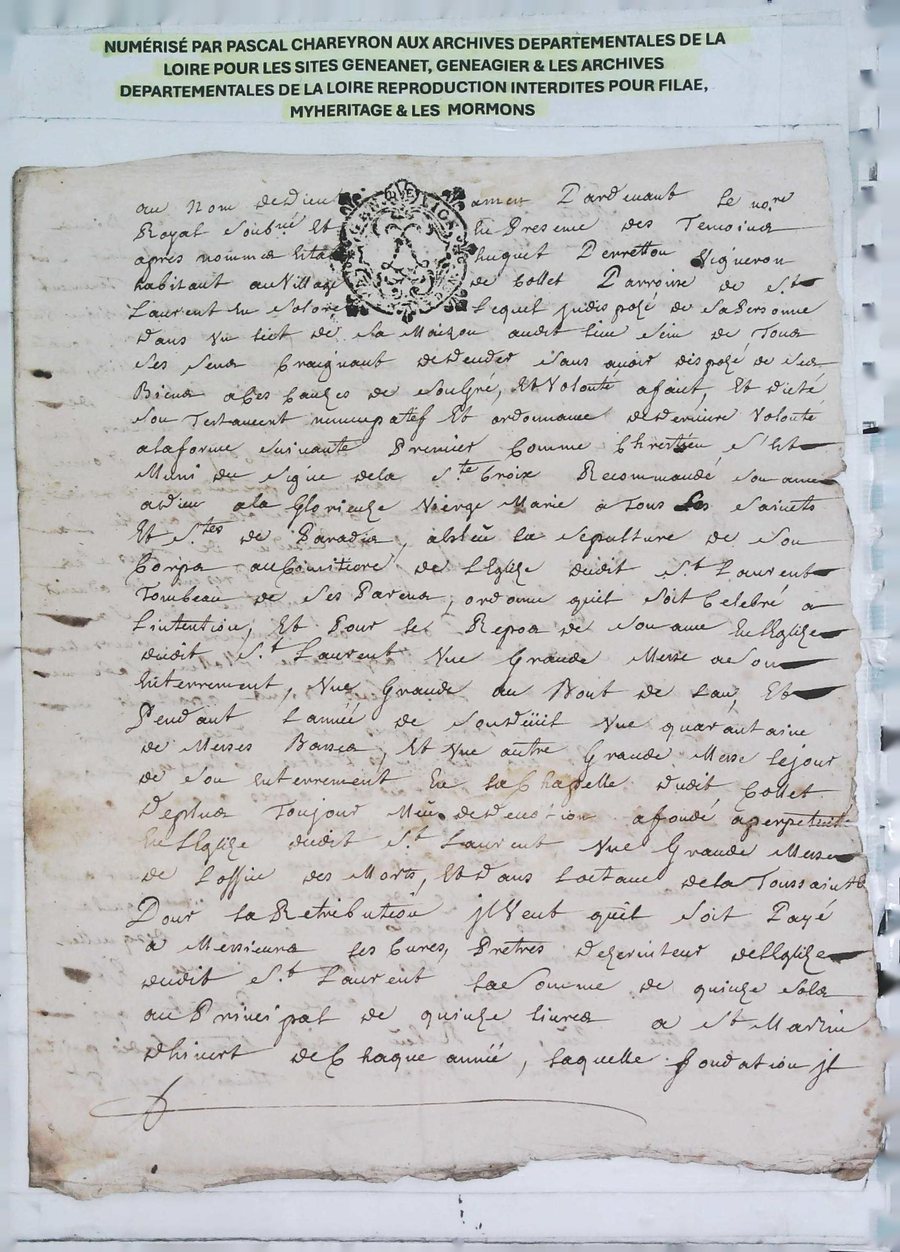 NUMÉRISÉ PAR PASCAL CHAREYRON AUX ARCHIVES DEPARTEMENTALES DE LA
LOIRE POUR LES SITES GENEANET, GENEAGIER & LES ARCHIVES
DEPARTEMENTALES DE LA LOIRE REPRODUCTION INTERDITES POUR FILAE,
MYHERITAGE & LES MORMONS
au Nom de Dieu amen Pardevant le no.re
Royal Soubné et en Presence des Temoins
apres nommes huguet Perretton Vigneron
habitant au Village de Collet Parroisse de St
Laurent en Solore Lequel jndispozé de Sa Personne
Dans un lict de Sa Maizon audit lieu Sein de Tous
Ses Sens Craignant de deceder Sans avoir dispozé de Ses
Biens a Ces Causes de Son gré, Et Volonté a fait, Et dicté
Son Testament nuncupatif Et ordonnance de Derniere Volonté
a la forme Suivante Premier Comme Chretien S'Est
Muni du Signe de la S.te Croix Recommandé Son ame
a dieu a la Glorieuze Vierge Marie a Tous les Saincts
Et S.tes de Paradis, la Sepulture de Son
Corps au Cimitiere de L'Eglize dudit S.t Laurent
Tombeau de Ses Parens, ordonne qu'il Soit Celebré a
L'intention, Et Pour le Repos de Son ame En L'Eglize
dudit S.t Laurent Une Grande Messe a Son
Enterrement, Une Grande au Bout de L'an, Et
Pendant L'année de Son deüit Une quarantaine
de Messes Basses, Et Une autre Grande Messe le jour
de Son Enterrement En la Chapelle dudit Collet
De plus Toujour Meü de Devotion a fondé a perpetuité
En L'Eglize dudit S.t Laurent Une Grande Messe
de L'office des Morts, Et dans L'octave de la Toussaint
Pour la Retribution jl Veut qu'il Soit Payé
a Messieurs les Cures, Pretres de L'Eglize
dudit S.t Laurent la Somme de quinze Sols
au Principal de quinze livres a St Martin
d'hivert de Chaque année, laquelle fondation jl